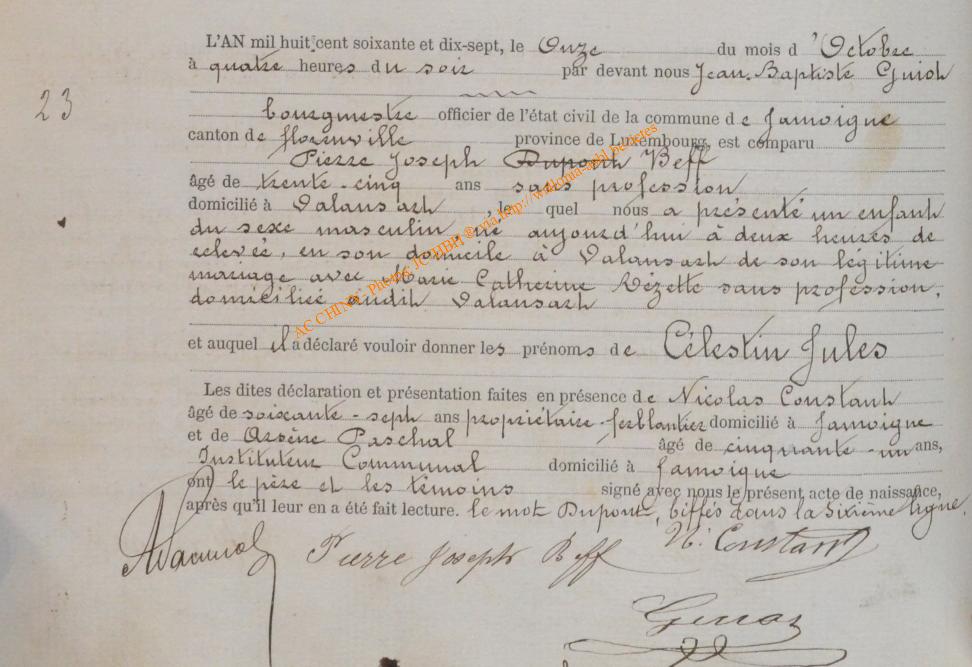 L'AN mil huit cent soixante et dix-sept, le Onze du mois d'Octobre
à quatre heures du soir par devant nous Jean-Baptiste
23
bourgmestre officier de l'état civil de la commune de Jamoigne
canton de florenville province de Luxembourg, est comparu
Pierre Joseph Dupont Beff
âgé de trente-cinq ans sans profession
domicilié à Valansart, lequel nous a présenté un enfant
du sexe masculin, né aujourd'hui à deux heures de
relevée, en son domicile à Valansart de son légitime
mariage avec Marie Catherine sans profession,
domiciliée audit Valansart
et auquel il a déclaré vouloir donner les prénoms de Célestin Jules
Les dites déclaration et présentation faites en présence de Nicolas Constant
âgé de soixante-sept ans propriétaire-ferblantier domicilié à Jamoigne
et de Arsène Paschal âgé de cinquante-un ans,
Instituteur Communal domicilié à Jamoigne
ont le père et les témoins signé avec nous le présent acte de naissance,
après qu'il leur en a été fait lecture. le mot Dupont, biffés dans la Sixième ligne.
Pierre Joseph Beff N. Constant
AC CHINY, Photos JCHBH © via http://wallonia-asbl.be/etes